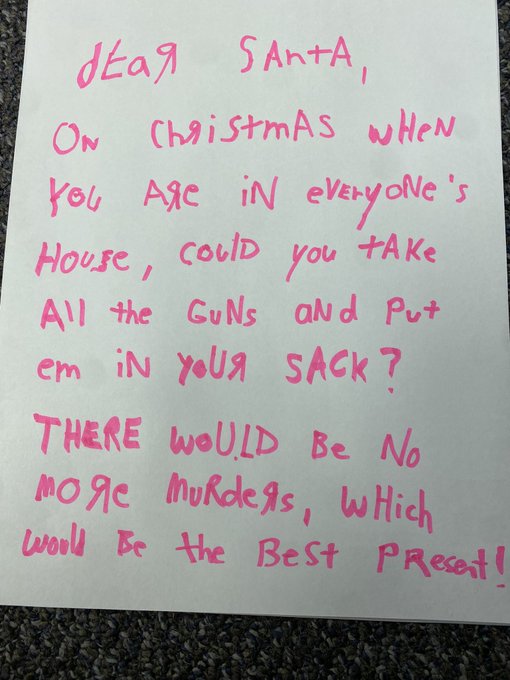 dEaR SAntA,
ON ChRistmAS wHeN
YOU ARe iN eVERyONe's
HOUSe, COULD you tAKe
All the GUNs aNd PUt
em iN YOUR SACK?
THERE WOULD Be No
MORe MURdeRs, WHich
Would Be the BeST PResent!